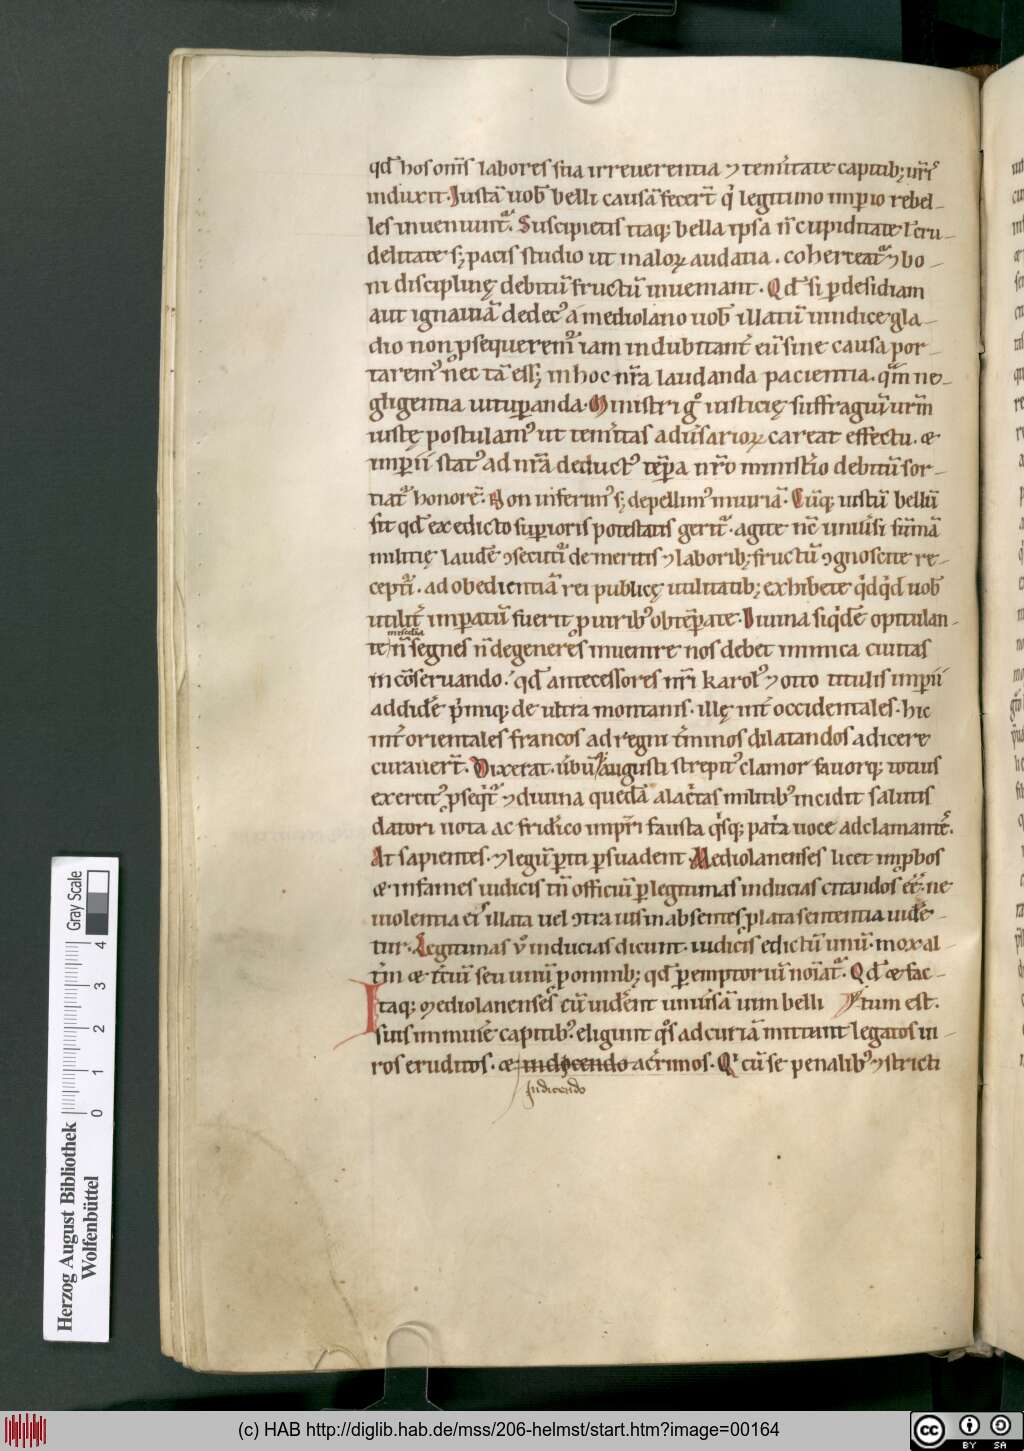 qđ hos om̄s labores sua irreuerentia ⁊ tem̄itate capitib; ur̄is
induxit. Iustā uob̄ belli causā fecer̄t q̇ legitimo imp̄io rebel-
les inueniunt᷑. Suscipietis itaq; bella ipsa n̄ cupiditate ł cru-
delitate s; pacis studio ut maloꝝ audatia. coherceat᷑ ⁊ bo-
ni disciplinę debitū fructū inueniant. Qđ si ꝑ desidiam
aut ignauiā dedec᷒ a mediolano uob̄ illatū uindice gla-
dio non ꝓsequerem᷒ iam indubitant̄ eū sine causa por-
tarem᷒ nec tā ess; in hoc nr̄a laudanda pacientia. q̄m ne-
gligentia uituꝑanda. Ministri gͦ iusticię suffragiū urm̄
iustę postulam᷒ ut tem̄itas aduersarioꝝ careat effectu. æ
imꝑii stat᷒ ad nr̄a deduct᷒ tēꝑa nr̄o ministio debitū sor-
tiat᷑ honorē. Non inferim᷒ s; depellim᷒ iniuriā. Cūq; iustū bellū
sit qđ ex edicto suꝑioris potestatis gerit᷑. agite nc̄ uniūsi sūmā
militię laudē ꝯsecuti de meritis ⁊ laborib; fructū ꝯgnoscite re-
cepturi. ad obedientiā rei publicę utilitatib; exhibete qdqd uob̄
utilit̄ imꝑatū fuerit ꝓ uirib᷒ obtēꝑate. Diuina siqdē opitulan-
te miscdia n̄ segnes n̄ degeneres inuenire nos debet inimica ciuitas
in cōseruando. qđ antecessores nr̄i karol᷒ ⁊ otto titulis imꝑii
addidē p̄miq; de ultra montanis. illę int̄ occidentales. hic
int̄ orientales francos ad regni t̄minos dilatandos adicere
curauer̄t. Dixerat. ūbū augusti strepit᷒ clamor fauorq; totius
exercit᷒ ꝓseqt᷑ ⁊ diuina quedā alac̄tas militib᷒ incidit salutis
datori uota ac frid̄ico imꝑr̄i fausta qsq; pat̄a uoce adclamante.
At sapientes. ⁊ legū ꝑiti ꝑsuadent. Mediolanenses licet imꝓbos
æ infames iudicis tn̄ officiū ꝑ legitimas inducias citandos ēē. ne
uiolentia ei᷒ illata uel ꝯtra ius in absentes ꝓlata sententia uidē-
tur. Legitimas v̊ inducias dicunt. iudicis edictū unū. mox al-
t̄m æ t̄ciū seu unū ꝓ omnib; qđ ꝑemptoriū noīat᷑. Qđ æ fac-
Itaq; Mediolanenses cū uidēnt uniūsā uim belli tum est.
suis inminē capitib᷒. eligunt qsd ad curiā mittunt legatos ui-
ros eruditos. æ in dicendo acr̄imos. Qi cū se penalib᷒ ꝯstricti
Indicendo
Herzog August Bibliothek
Wolfenbüttel
Gray Scale
0 1 2 3 4
(c) HAB http://diglib.hab.de/mss/206-helmst/start.htm?image=00164
cc BY SA